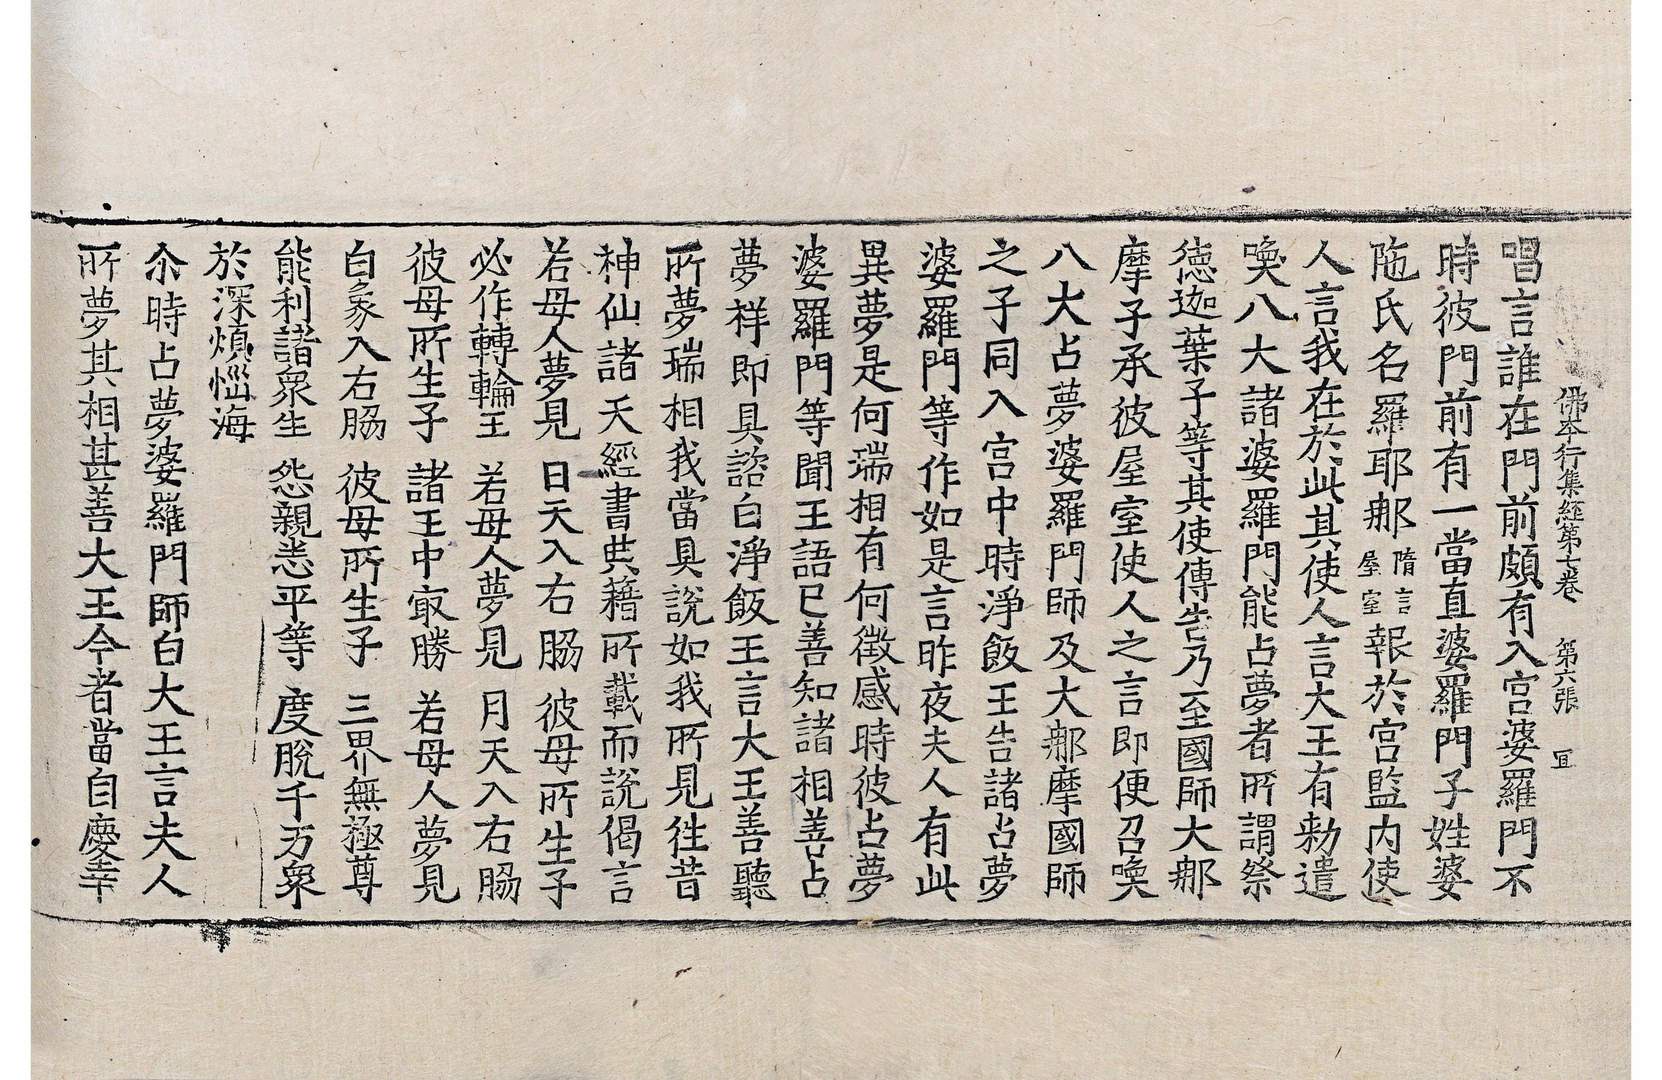 佛本行集經第七卷　第六張　冝
唱言誰在門前頗有入宫婆羅門不
時彼門前有一當直婆羅門子姓婆
陁氏名羅耶那隋言屋室報於宫監内使
人言我在於此其使人言大王有勑遣
喚八大諸婆羅門能占夢者所謂祭
德迦葉子等其使傳告乃至國師大那
摩子承彼屋室使人之言即便召喚
八大占夢婆羅門師及大那摩國師
之子同入宫中時淨飯王告諸占夢
婆羅門等作如是言昨夜夫人有此
異夢是何瑞相有何徵感時彼占夢
婆羅門等聞王語已善知諸相善占
夢祥即具諮白淨飯王言大王善聽
所夢瑞相我當具說如我所見徃昔
神仙諸天經書典籍所載而說偈言
若母人夢見　日天入右脇　彼母所生子
必作轉輪王　若母人夢見　月天入右脇
彼母所生子　諸王中㝡勝　若母人夢見
白象入右脇　彼母所生子　三界無極尊
能利諸衆生　怨親悉平等　度脫千万衆
於深煩惱海
尒時占夢婆羅門師白大王言夫人
所夢其相甚善大王今者當自慶幸